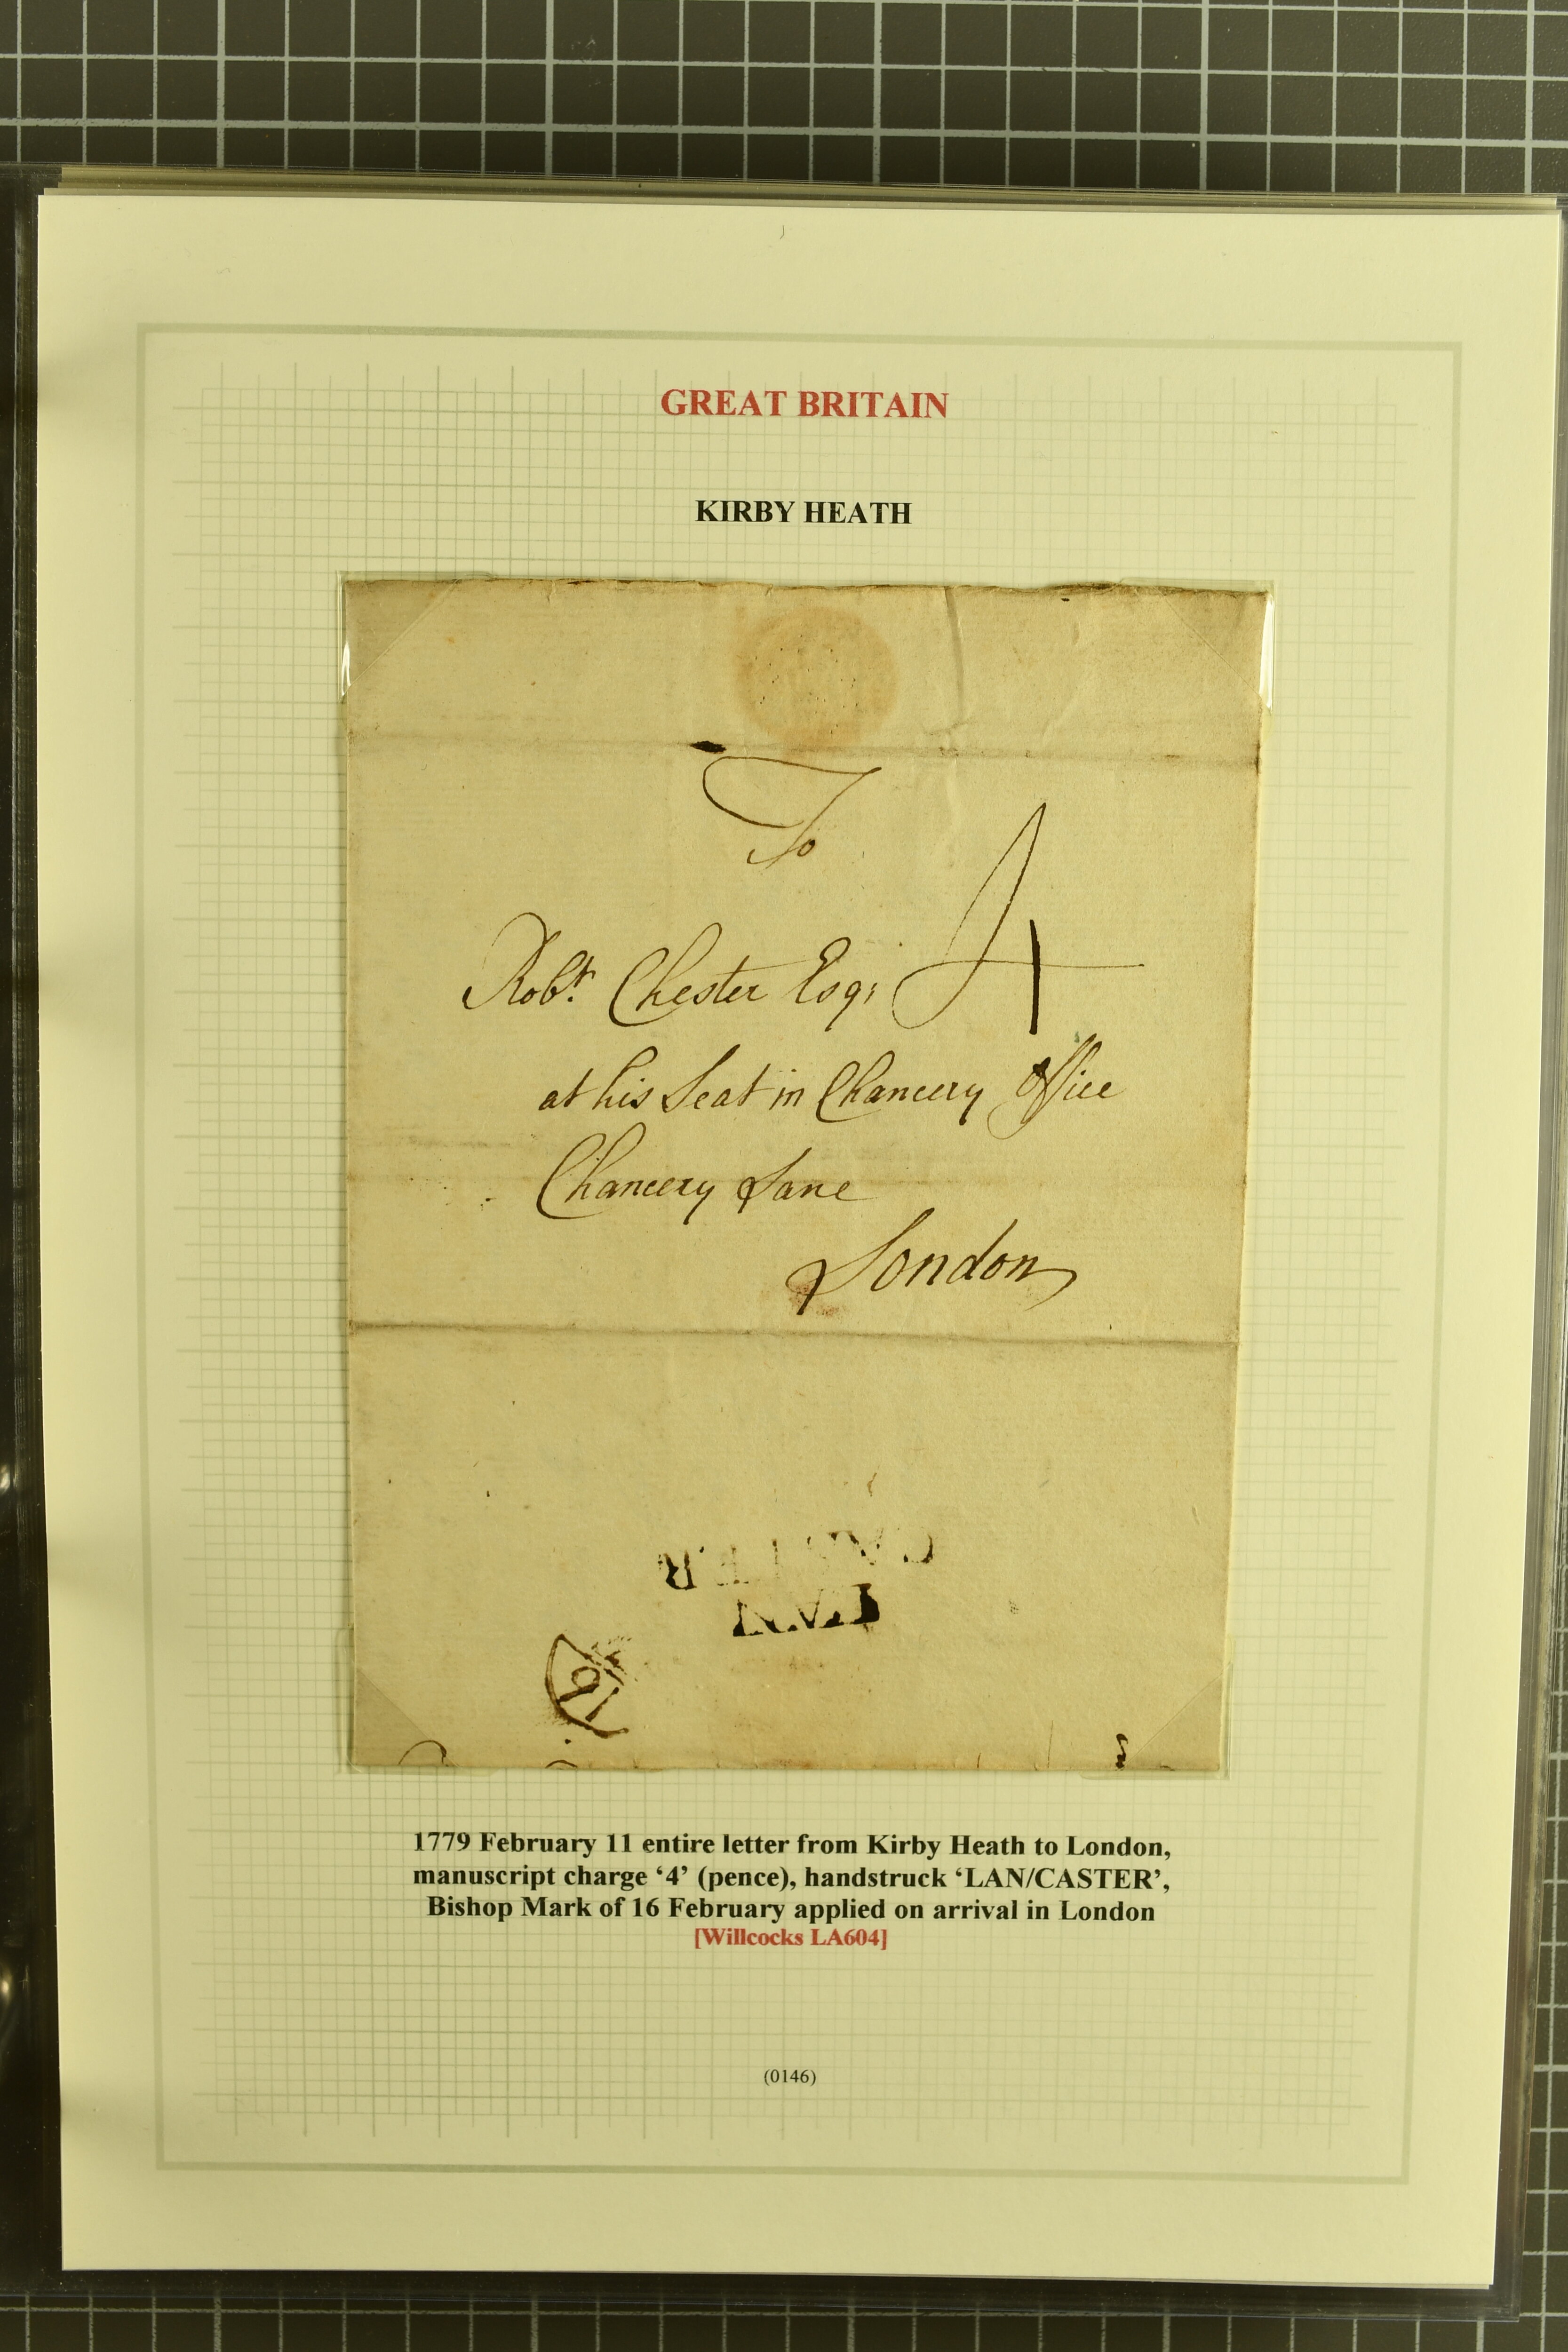 GREAT BRITAIN
KIRBY HEATH
To
Robt. Chester Esqr
4
at his Seat in Chancery Office
Chancery Lane
London
CASTER
LAN
16
1779 February 11 entire letter from Kirby Heath to London,
manuscript charge ‘4’ (pence), handstruck ‘LAN/CASTER’,
Bishop Mark of 16 February applied on arrival in London
[Willcocks LA604]
(0146)